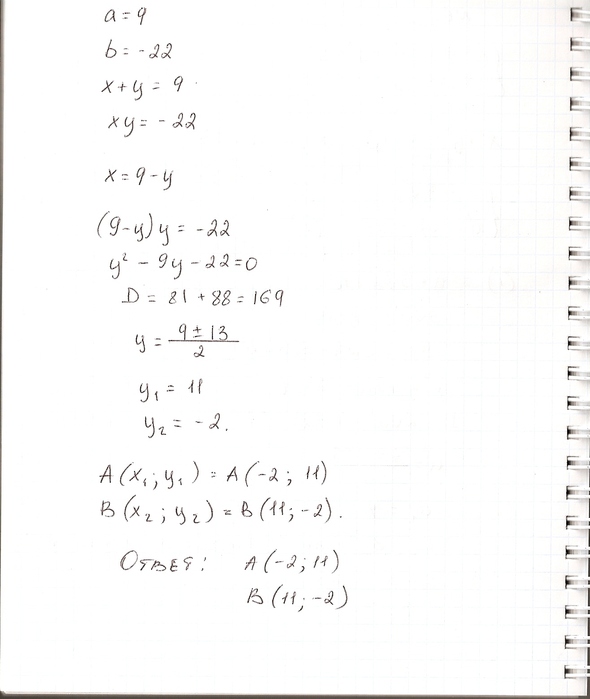 a = 9
b = -22
x + y = 9
xy = -22
x = 9 - y
(9-y)y = -22
y² - 9y - 22 = 0
D = 81 + 88 = 169
y = (9 ± 13)/2
y₁ = 11
y₂ = -2.
A (x₁; y₁) = A(-2; 11)
B (x₂; y₂) = B(11; -2).
Ответ: A(-2; 11)
B(11; -2)